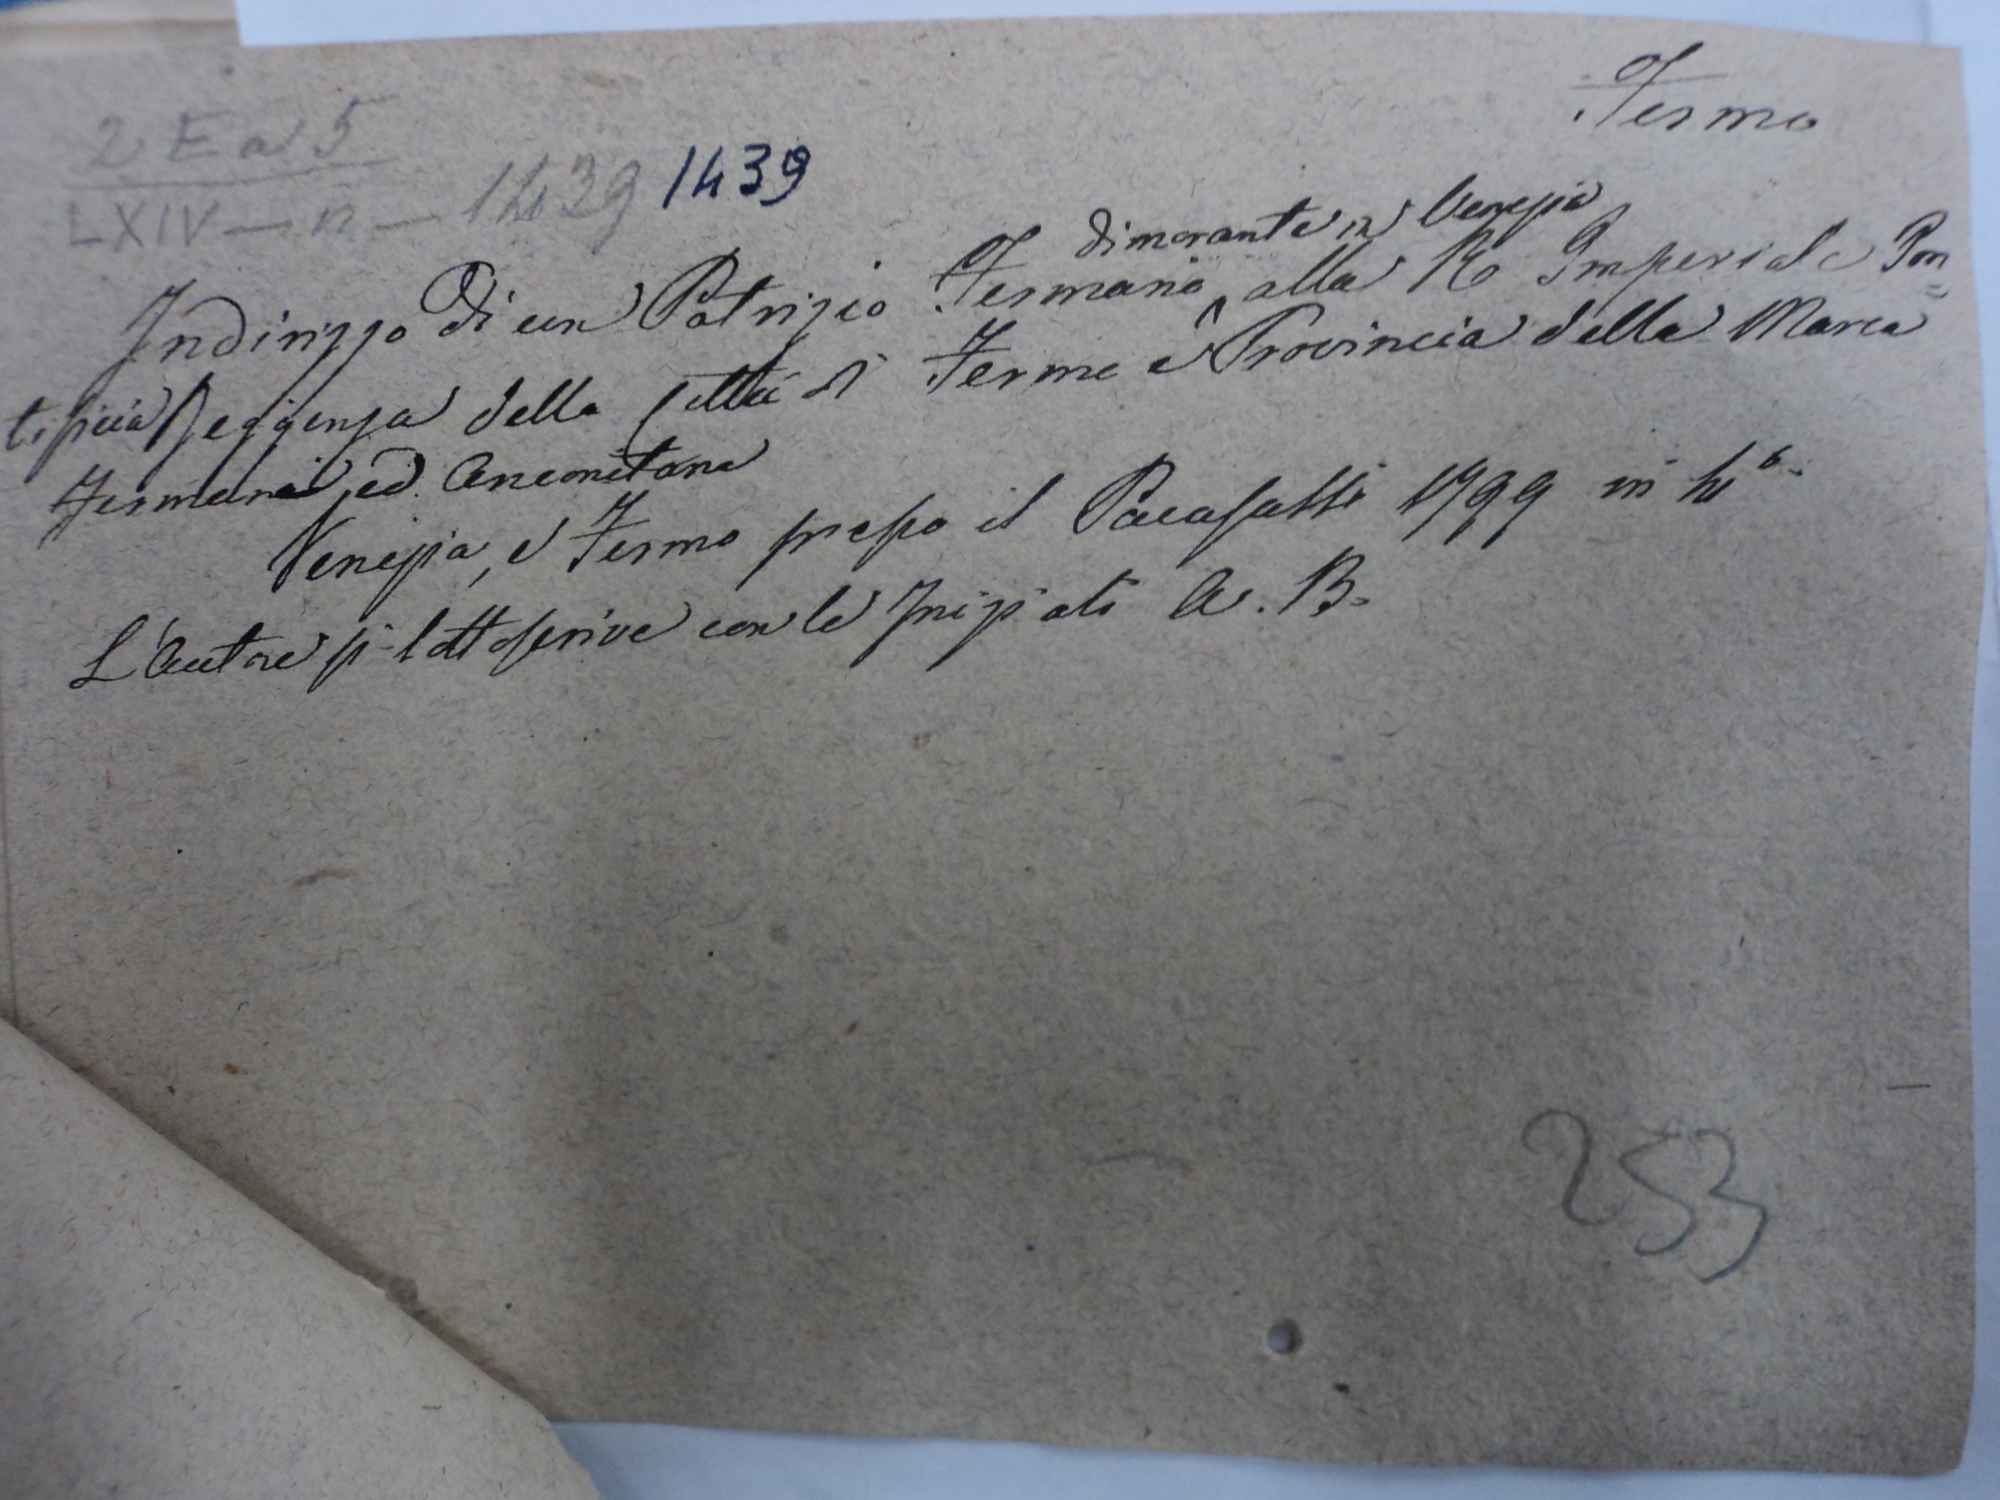 Fermo
2 E a 5
LXIV — n — 1439 1439
dimorante in Venezia
Indirizzo di un Patrizio Fermano ^ alla R. Imperiale Pon=
tificia Reggenza della Città di Fermo e Provincia della Marca
Fermana, ed Anconitana
Venezia, e Fermo presso il Pacasassi 1799 in 4º.
L'Autore si sottoscrive con le Iniziali A. B.
253